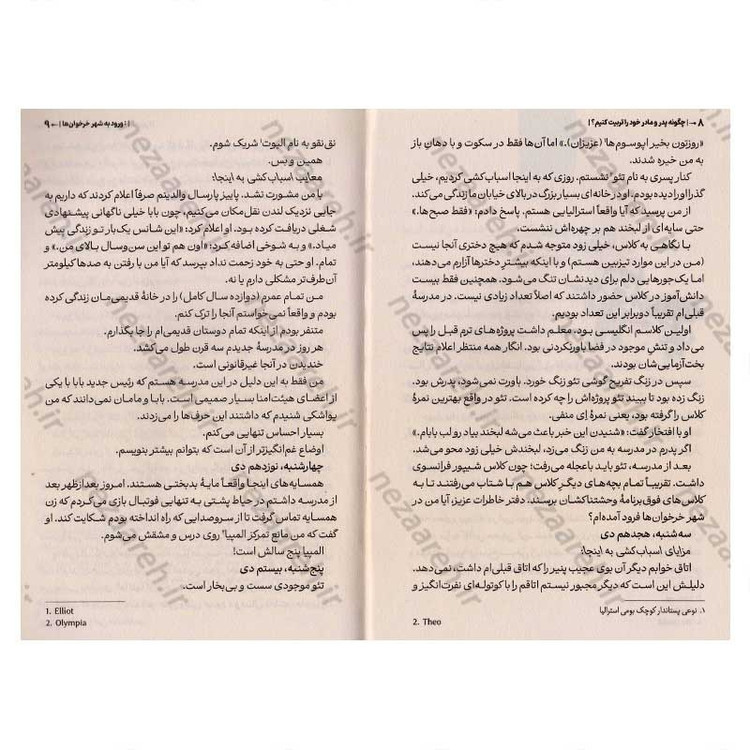 ۸ → | چگونه پدر و مادر خود را تربیت کنیم؟ |
«روزتون بخیر اپوسوم‌ها¹ (عزیزان).» اما آن‌ها فقط در سکوت و با دهان باز
به من خیره شدند.
کنار پسری به نام تئو² نشستم. روزی که به اینجا اسباب‌کشی کردیم، خیلی
گذرا او را دیده بودم. او در خانه‌ای بسیار بزرگ در بالای خیابان ما زندگی می‌کند.
از من پرسید که آیا واقعاً استرالیایی هستم. پاسخ دادم: «فقط صبح‌ها.»
حتی سایه‌ای از لبخند هم بر چهره‌اش ننشست.
با نگاهی به کلاس، خیلی زود متوجه شدم که هیچ دختری آنجا نیست
(من در این موارد تیزبین هستم) و با اینکه بیشتر دخترها آزارم می‌دهند،
اما یک‌جورهایی دلم برای دیدنشان تنگ می‌شود. همچنین فقط بیست
دانش‌آموز در کلاس حضور داشتند که اصلاً تعداد زیادی نیست. در مدرسهٔ
قبلی‌ام تقریباً دوبرابر این تعداد بودیم.
اولین کلاسم انگلیسی بود. معلم داشت پروژه‌های ترم قبل را پس
می‌داد و تنش موجود در فضا باورنکردنی بود. انگار همه منتظر اعلام نتایج
بخت‌آزمایی‌شان بودند.
سپس در زنگ تفریح گوشی تئو زنگ خورد. باورت نمی‌شود، پدرش بود.
زنگ زده بود تا ببیند تئو پروژه‌اش را چه کرده است. تئو در واقع بهترین نمرهٔ
کلاس را گرفته بود، یعنی نمرهٔ اِی منفی.
او با افتخار گفت: «شنیدن این خبر باعث می‌شه لبخند بیاد رو لب بابام.»
اگر پدرم در مدرسه به من زنگ می‌زد، لبخندش خیلی زود محو می‌شد.
بعد از مدرسه، تئو باید باعجله می‌رفت؛ چون کلاس شیپور فرانسوی
داشت. تقریباً تمام بچه‌های دیگر کلاس هم با شتاب می‌رفتند تا به
کلاس‌های فوق‌برنامهٔ وحشتناکشان برسند. دفتر خاطرات عزیز، آیا من در
شهر خرخوان‌ها فرود آمده‌ام؟
سه‌شنبه، هجدهم دی
مزایای اسباب‌کشی به اینجا:
اتاق خوابم دیگر آن بوی عجیب پنیر را که اتاق قبلی‌ام داشت، نمی‌دهد.
دلیلش این است که دیگر مجبور نیستم اتاقم را با کوتوله‌ای نفرت‌انگیز و
۱. نوعی پستاندار کوچک بومی استرالیا
2. Theo
| ورود به شهر خرخوان‌ها | ← ۹
نق‌نقو به نام الیوت¹ شریک شوم.
همین و بس.
معایب اسباب‌کشی به اینجا:
با من مشورت نشد. پاییز پارسال والدینم صرفاً اعلام کردند که داریم به
جایی نزدیک لندن نقل‌مکان می‌کنیم، چون بابا خیلی ناگهانی پیشنهادی
شغلی دریافت کرده بود. او اعلام کرد: «این شانس یک‌بار تو زندگی پیش
میاد.» و به شوخی اضافه کرد: «اون هم تو این سن‌وسال بالای من.» و
تمام. او حتی به خود زحمت نداد بپرسد که آیا من با رفتن به صدها کیلومتر
آن‌طرف‌تر مشکلی دارم یا نه.
من تمام عمرم (دوازده سال کامل) را در خانهٔ قدیمی‌مان زندگی کرده
بودم و واقعاً نمی‌خواستم آنجا را ترک کنم.
متنفر بودم از اینکه تمام دوستان قدیمی‌ام را جا بگذارم.
هر روز در مدرسهٔ جدیدم سه قرن طول می‌کشد.
خندیدن در آنجا غیرقانونی است.
من فقط به این دلیل در این مدرسه هستم که رئیس جدید بابا با یکی
از اعضای هیئت‌امنا بسیار صمیمی است. بابا و مامان نمی‌دانند که من
یواشکی شنیدم که داشتند این حرف‌ها را می‌زدند.
بسیار احساس تنهایی می‌کنم.
اوضاع غم‌انگیزتر از آن است که بتوانم بیشتر بنویسم.
چهارشنبه، نوزدهم دی
همسایه‌های اینجا واقعاً مایهٔ بدبختی هستند. امروز بعدازظهر بعد
از مدرسه داشتم در حیاط پشتی به تنهایی فوتبال بازی می‌کردم که زن
همسایه تماس گرفت تا از سروصدایی که راه انداخته بودم شکایت کند. او
گفت که من مانع تمرکز المپیا² روی درس و مشقش می‌شوم.
المپیا پنج سالش است!
پنج‌شنبه، بیستم دی
تئو موجودی سست و بی‌بخار است.
1. Elliot
2. Olympia
nezaareh.ir